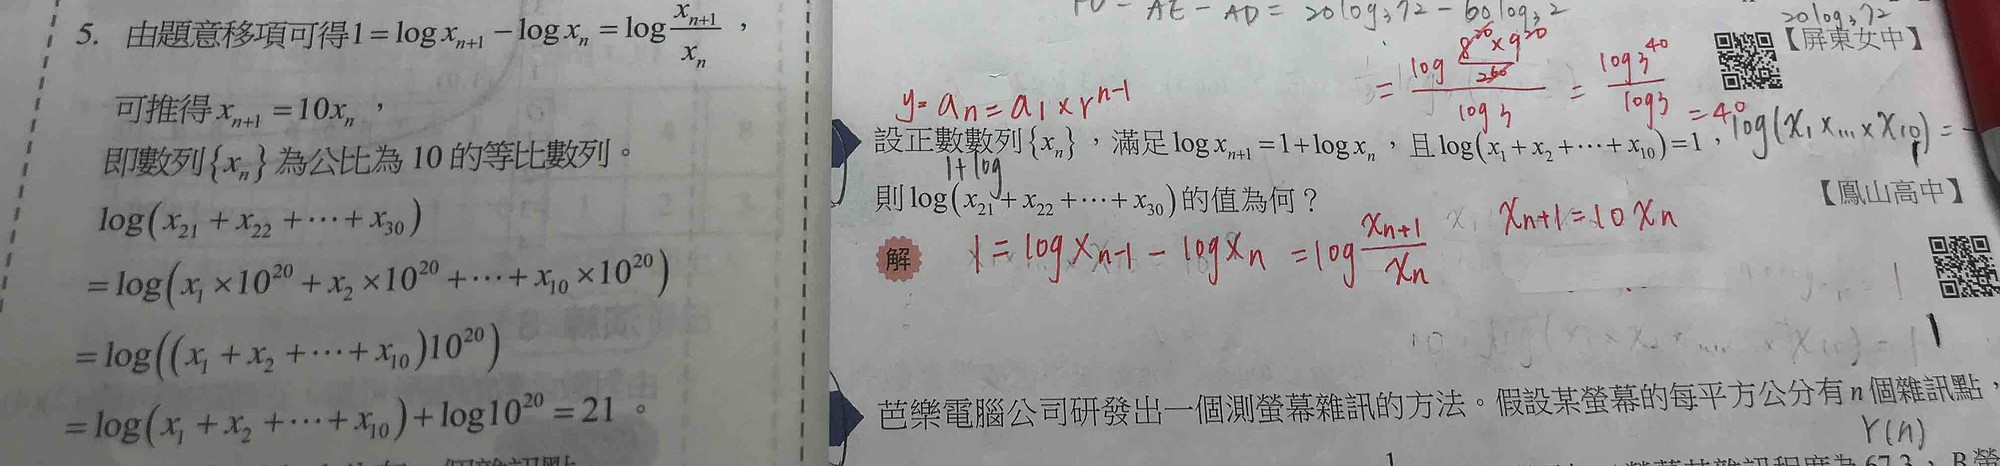 5. 由題意移項可得1=log xₙ₊₁−log xₙ=log xₙ₊₁/xₙ，
可推得 xₙ₊₁=10xₙ，
即數列{xₙ}為公比為 10 的等比數列。
log(x₂₁+x₂₂+⋯+x₃₀)
=log(x₁×10²⁰+x₂×10²⁰+⋯+x₁₀×10²⁰)
=log((x₁+x₂+⋯+x₁₀)10²⁰)
=log(x₁+x₂+⋯+x₁₀)+log10²⁰=21。
− AE − AD = 20log₃72 − 60log₃2
20log₃72
【屏東女中】
= log (8²⁰×9²⁰/2⁶⁰) / log3 = log3⁴⁰ / log3 = 40
y= aₙ= a₁×rⁿ⁻¹
設正數數列{xₙ}，滿足 log xₙ₊₁=1+log xₙ，且 log(x₁+x₂+⋯+x₁₀)=1，
log(x₁×...×x₁₀)=
1+log
則 log(x₂₁+x₂₂+⋯+x₃₀)的值為何？
【鳳山高中】
解
1=logxₙ₋₁−logxₙ =log xₙ₊₁/xₙ
xₙ₊₁=10xₙ
芭樂電腦公司研發出一個測螢幕雜訊的方法。假設某螢幕的每平方公分有 n 個雜訊點，
r(n)